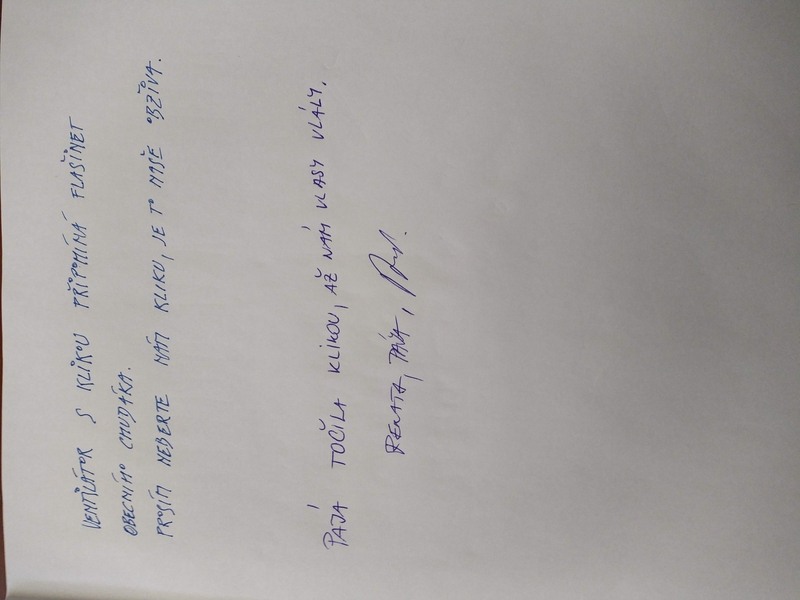 VENTILÁTOR S KLIKOU PŘIPOMÍNÁ FLAŠINET
OBECNÍHO CHUDÁKA.
PROSÍM NEBERTE NÁM KLIKU, JE TO NAŠE OBŽIVA.
PÁJA TOČILA KLIKOU, AŽ NÁM VLASY VLÁLY.
RENATA, PÁJA,